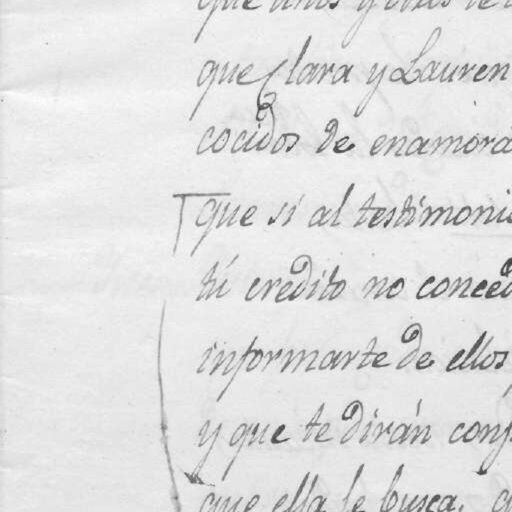 que unos y otros te
que Clara y Lauren
cocidos de enamora
que si al testimonio
tú credito no conced
informarte de ellos
y que te dirán conf
que ella le busca,